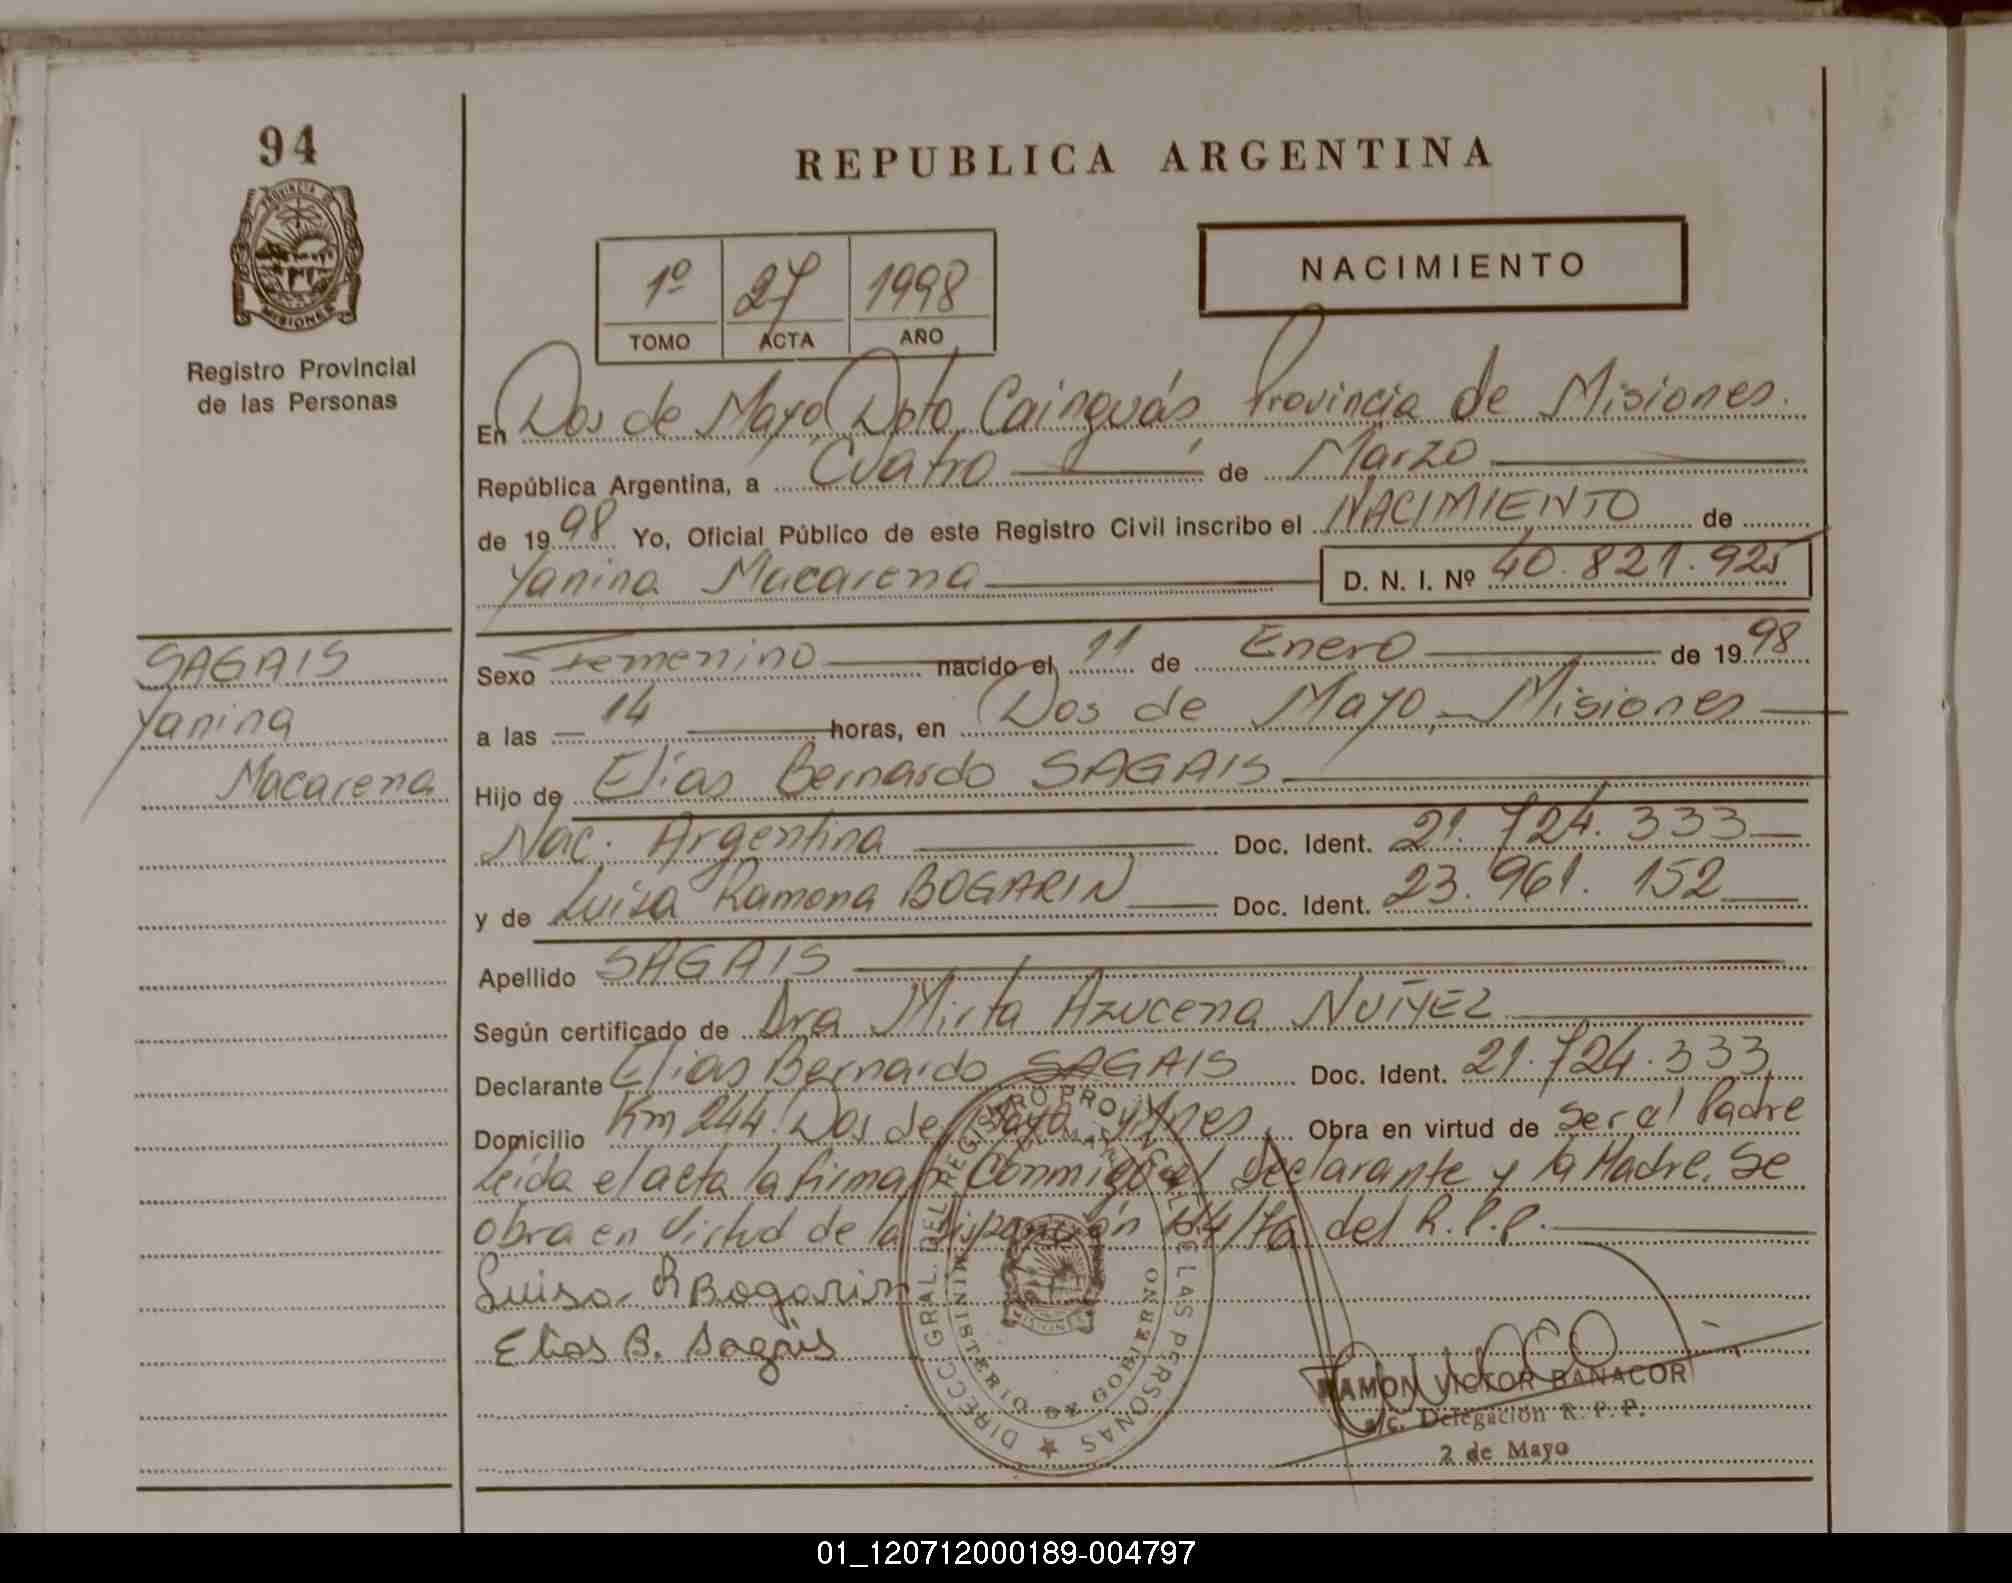 94
REPUBLICA ARGENTINA
PROVINCIA DE
MISIONES
Registro Provincial
de las Personas
1º 27 1998
TOMO ACTA AÑO
NACIMIENTO
En Dos de Mayo Dpto Cainguás Provincia de Misiones.
República Argentina, a Cuatro de Marzo
de 1998 Yo, Oficial Público de este Registro Civil inscribo el NACIMIENTO de
Yanina Macarena D. N. I. Nº 40.821.925
SAGAIS
Yanina
Macarena
Sexo Femenino nacido el 11 de Enero de 1998
a las 14 horas, en Dos de Mayo - Misiones
Hijo de Elias Bernardo SAGAIS
Nac. Argentina Doc. Ident. 21.724.333
y de Luisa Ramona BOGARIN Doc. Ident. 23.961.152
Apellido SAGAIS
Según certificado de Dra Mirta Azucena NUÑEZ
Declarante Elias Bernardo SAGAIS Doc. Ident. 21.724.333
Domicilio Km 244. Dos de Mayo Obra en virtud de ser el Padre
Leida el acta la firman Conmigo el Declarante y la Madre. Se
obra en Virtud de la Disposición del R.P.P.
Luisa R Bogarin
Elias B. Sagais
DIRECC. GRAL. DEL REGISTRO PROVINCIAL DE LAS PERSONAS
MINISTERIO DE GOBIERNO
MISIONES
RAMON VICTOR BANACOR
a/c. Delegación R. P. P.
2 de Mayo
01_120712000189-004797